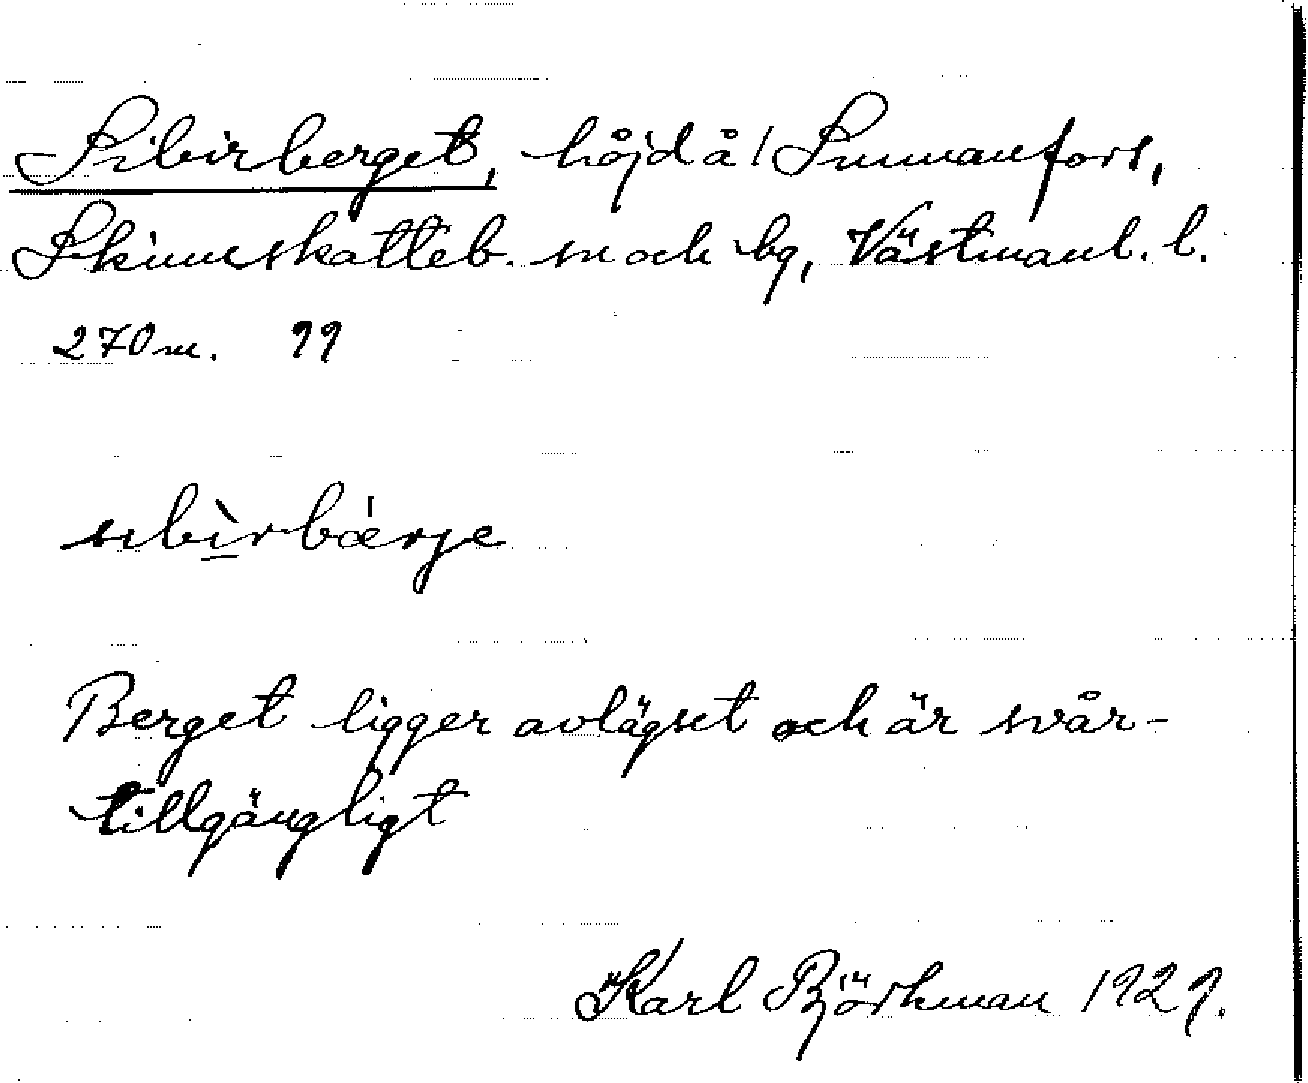 Sibirberget, höjd å 1 Sunnanfors,
Skinnskatteb. sn och bg, Västmanl. l.
270 m. 99
sibìrbá̈rje
Berget ligger avlägset och är svår-
tillgängligt
Karl Björkman 1929.